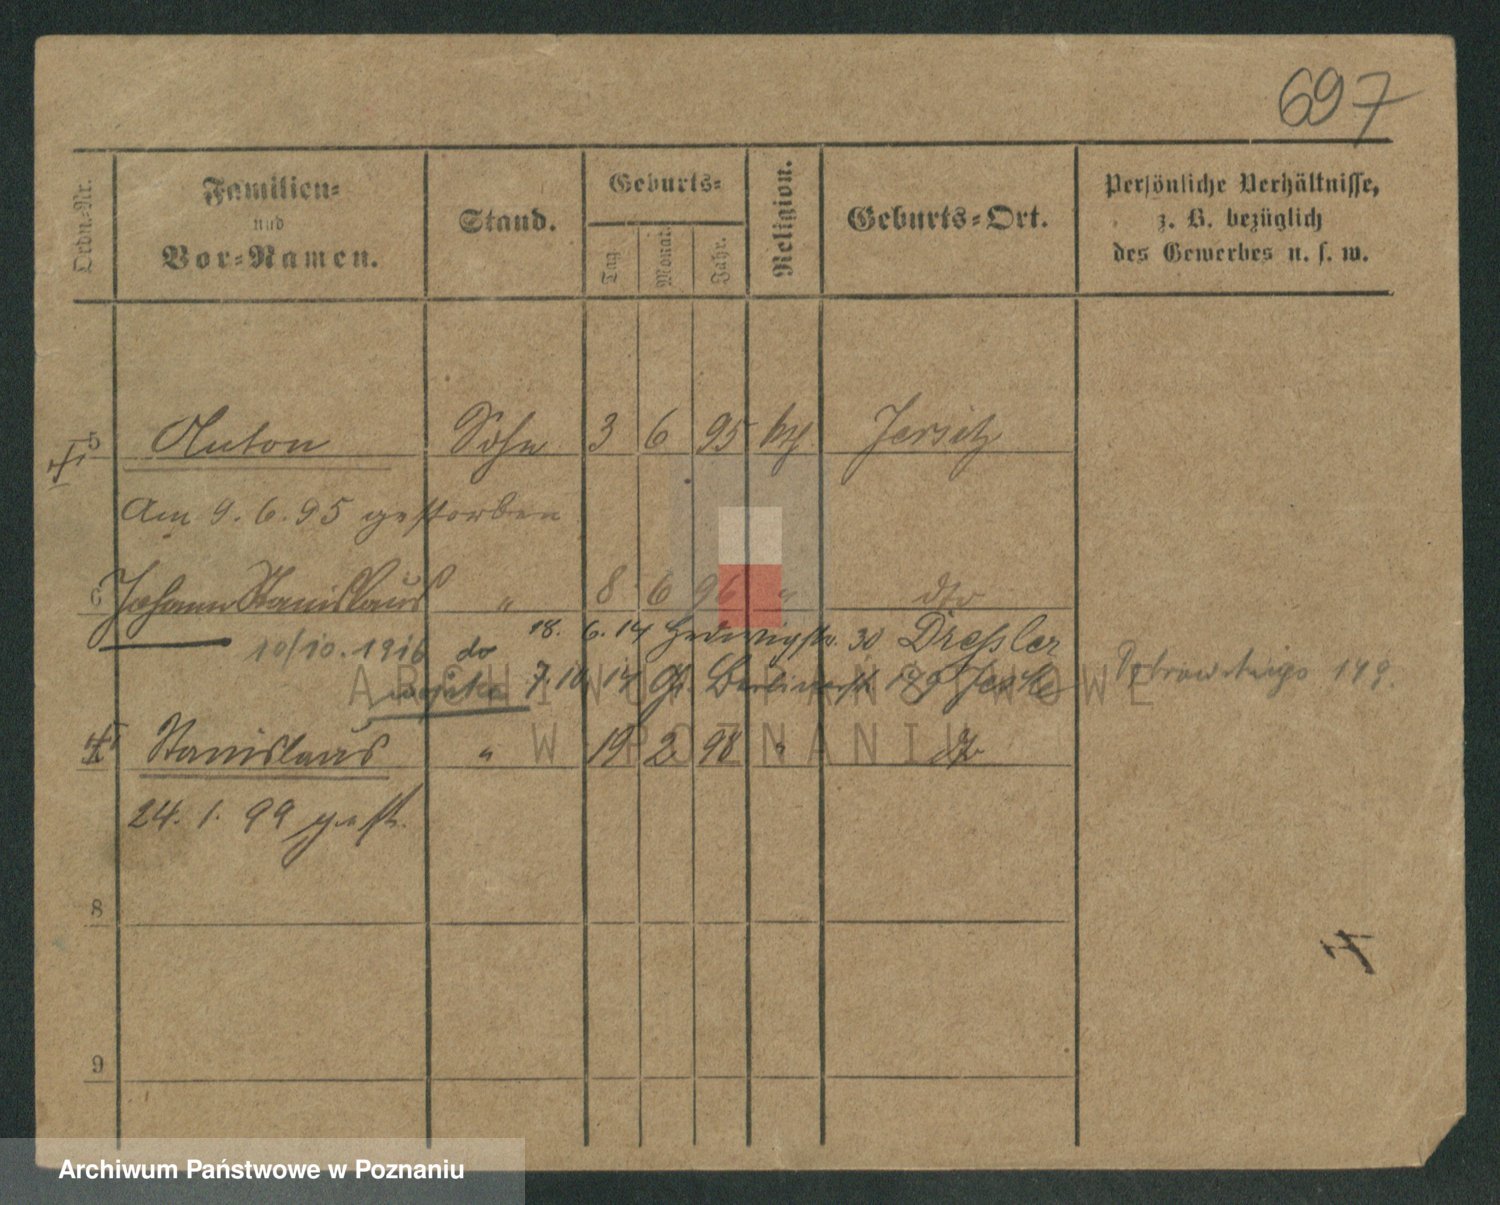 697
Ordn=Nr.
Familien=
und
Vor=Namen.
Stand.
Geburts=
Tag
Monat.
Jahr.
Religion.
Geburts=Ort.
Persönliche Verhältnisse,
z. B. bezüglich
des Gewerbes u. s. w.
5 Anton Sohn 3 6 95 kth Jersitz
Am 9.6.95 gestorben
6 Johann Stanislaus " 8 6 96 " dto
10/10.1916 do 18. 6. 14 Hedwigstr. 30 Dressler
wojska 7. 10. 14 Gr. Berlinerstr. 149.
ARCHIWUM PAŃSTWOWE
W POZNANIU
Stanislaus " 19 2 98 " dto
24. 1. 99 gest.
8
9
Archiwum Państwowe w Poznaniu